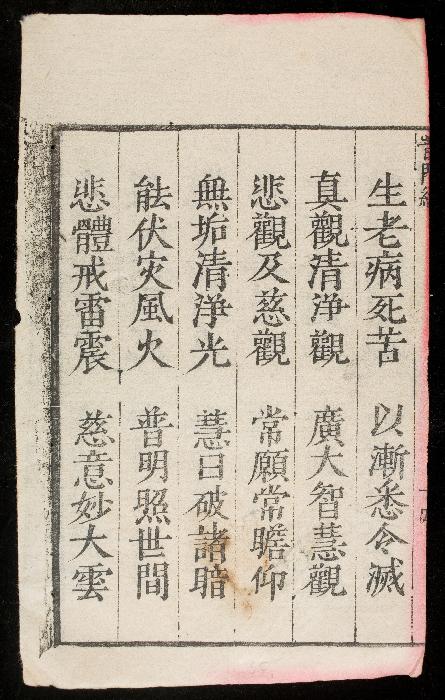 普門經
生老病死苦 以漸悉令滅
真觀清淨觀 廣大智慧觀
悲觀及慈觀 常願常瞻仰
無垢清淨光 慧日破諸暗
能伏灾風火 普明照世間
悲體戒雷震 慈意妙大雲